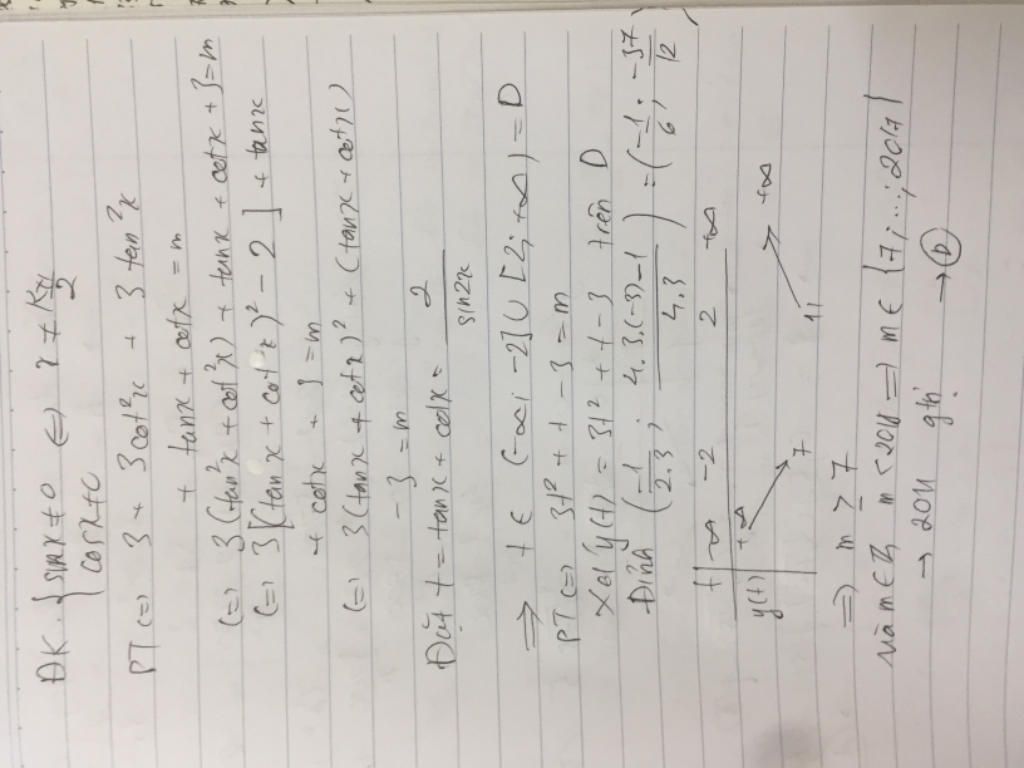 ĐK: { sinx ≠ 0
cosx ≠ 0 ⇔ x ≠ Kπ/2
PT (=) 3 + 3cot²x + 3tan²x
+ tanx + cotx = m
(=) 3(tan²x + cot²x) + tanx + cotx + 3 = m
(=) 3[(tanx + cotx)² - 2] + tanx
+ cotx + 3 = m
(=) 3(tanx + cotx)² + (tanx + cotx)
- 3 = m
Đặt t = tanx + cotx = 2/sin2x
=> t ∈ (-∞; -2] ∪ [2; +∞) = D
PT (=) 3t² + t - 3 = m
Xét y(t) = 3t² + t - 3 trên D
Đỉnh (-1/2.3; 4.3.(-3)-1/4.3) = (-1/6; -37/12)
t -∞ -2 2 +∞
y(t) +∞ 7 11 +∞
=> m ≥ 7
mà m ∈ Z, m < 2018 => m ∈ {7; ...; 2017}
→ 2011 gtị → D